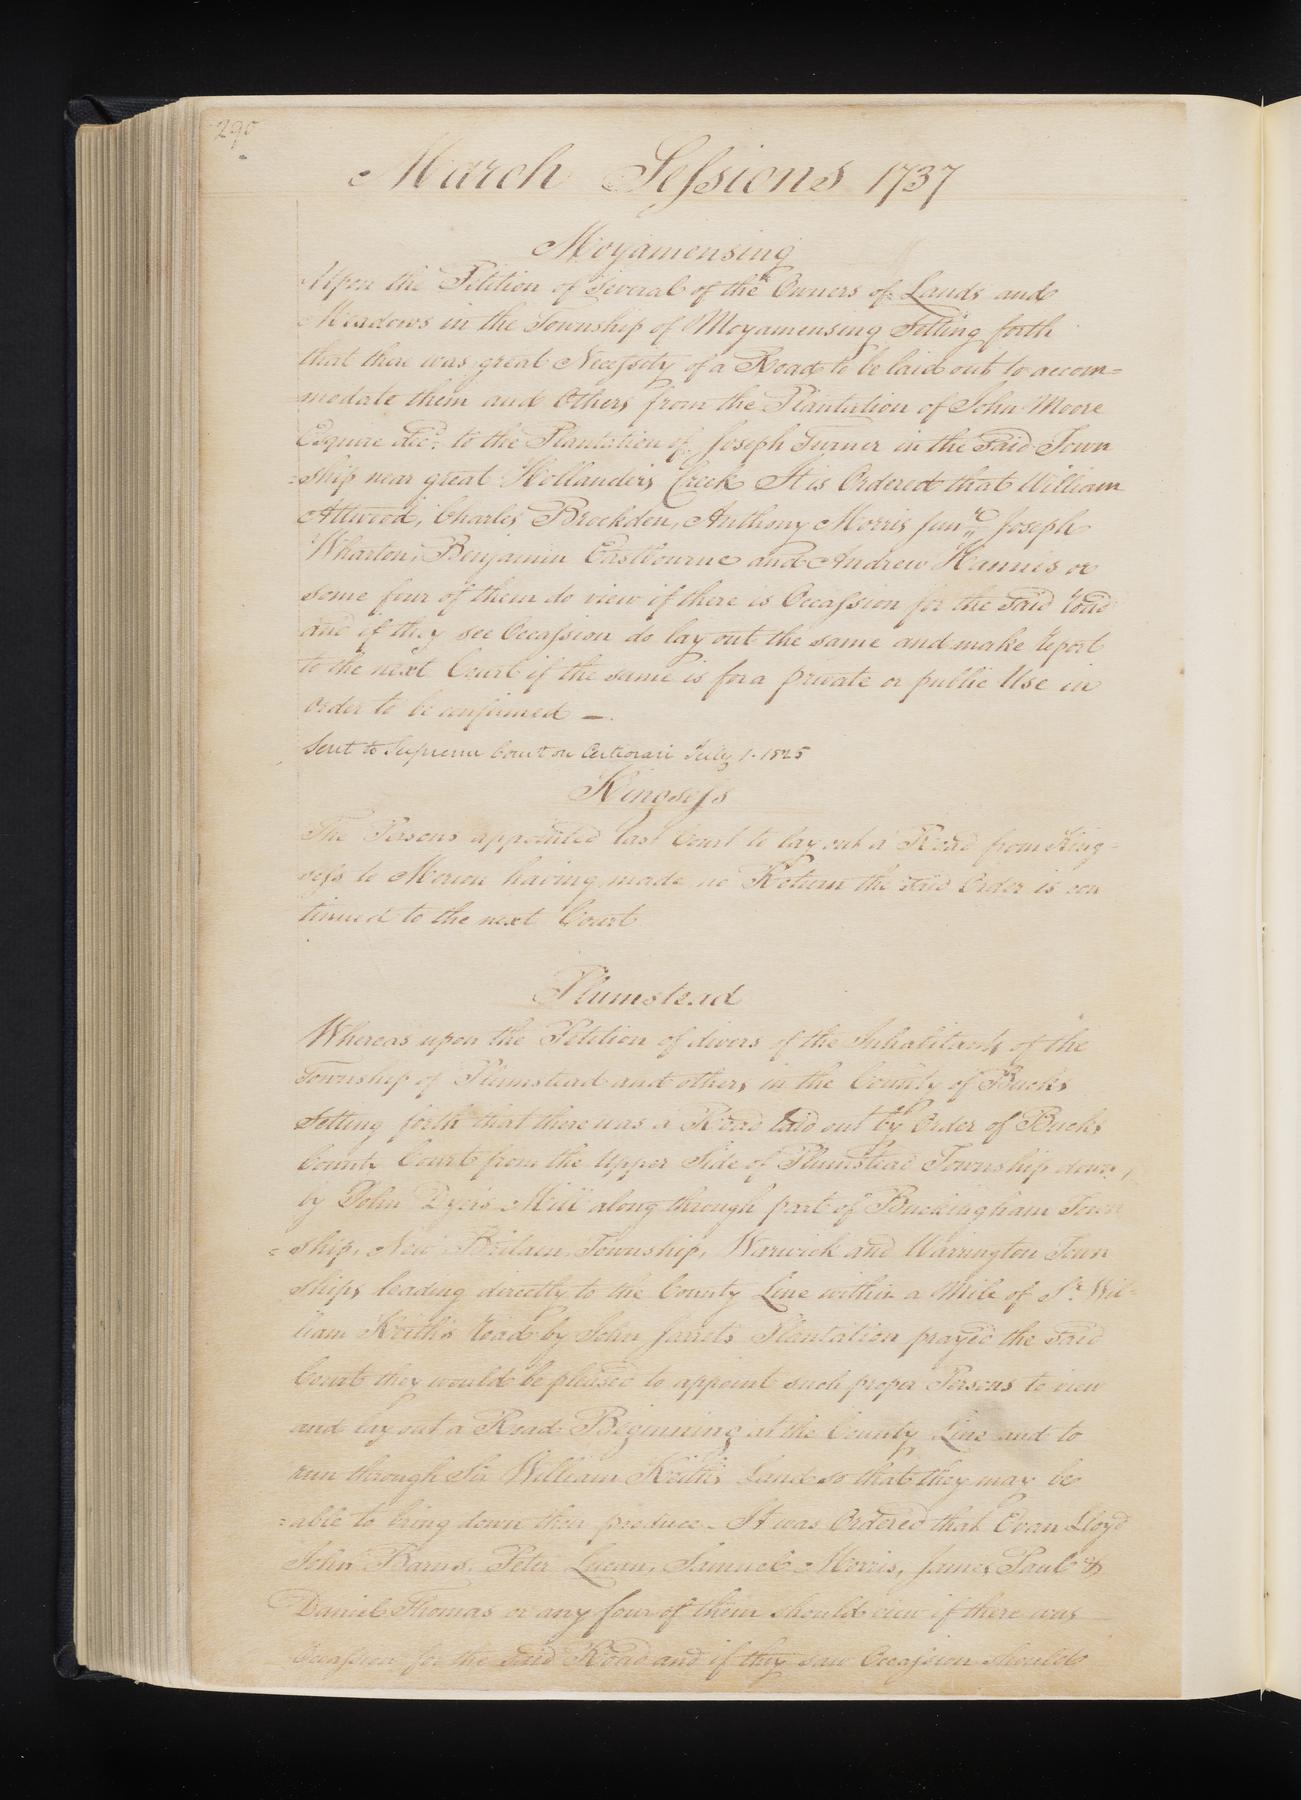 290
March Sessions 1737
Moyamensing
Upon the Petition of Several of the Owners of Lands and
Meadows in the Township of Moyamensing Setting forth
that there was great Necessity of a Road to be laid out to accom=
modate them and Others from the Plantation of John Moore
Esquire decd. to the Plantation of Joseph Turner in the said Town
=ship near great Hollanders Creek It is Ordered that William
Attwood, Charles Brockden, Anthony Morris Junr. Joseph
Wharton, Benjamin Eastbourne and Andrew Hannis or
some four of them do view if there is Occassion for the said road
and if they see Occassion do lay out the same and make report
to the next Court if the same is for a private or public Use in
order to be confirmed —.
Sent to Supreme Court on Certiorari July 1. 1825
Kingsess
The Persons appointed last Court to lay out a Road from King=
sess to Merion having made no Return the said Order is con
tinued to the next Court
Plumstead
Whereas upon the Petition of divers of the Inhabitants of the
Township of Plumstead and others in the County of Bucks
Setting forth that there was a Road laid out by Order of Bucks
County Court from the Upper Side of Plumstead Township down
by John Dyers Mill along through part of Buckingham Town
=ship, New Britain Township, Warwick and Warrington Town
ships leading directly to the County Line within a Mile of Sr. Wil=
liam Keith's road by John Jarrets Plantation prayed the said
Court they would be pleased to appoint such proper Persons to view
and lay out a Road Beginning at the County Line and to
run through Sir William Keiths Land so that they may be
=able to bring down their produce. It was Ordered that Evan Lloyd
John Barns, Peter Lucan, Samuel Morris, James Paul &
Daniel Thomas or any four of them should view if there was
Occassion for the said Road and if they saw Occassion should